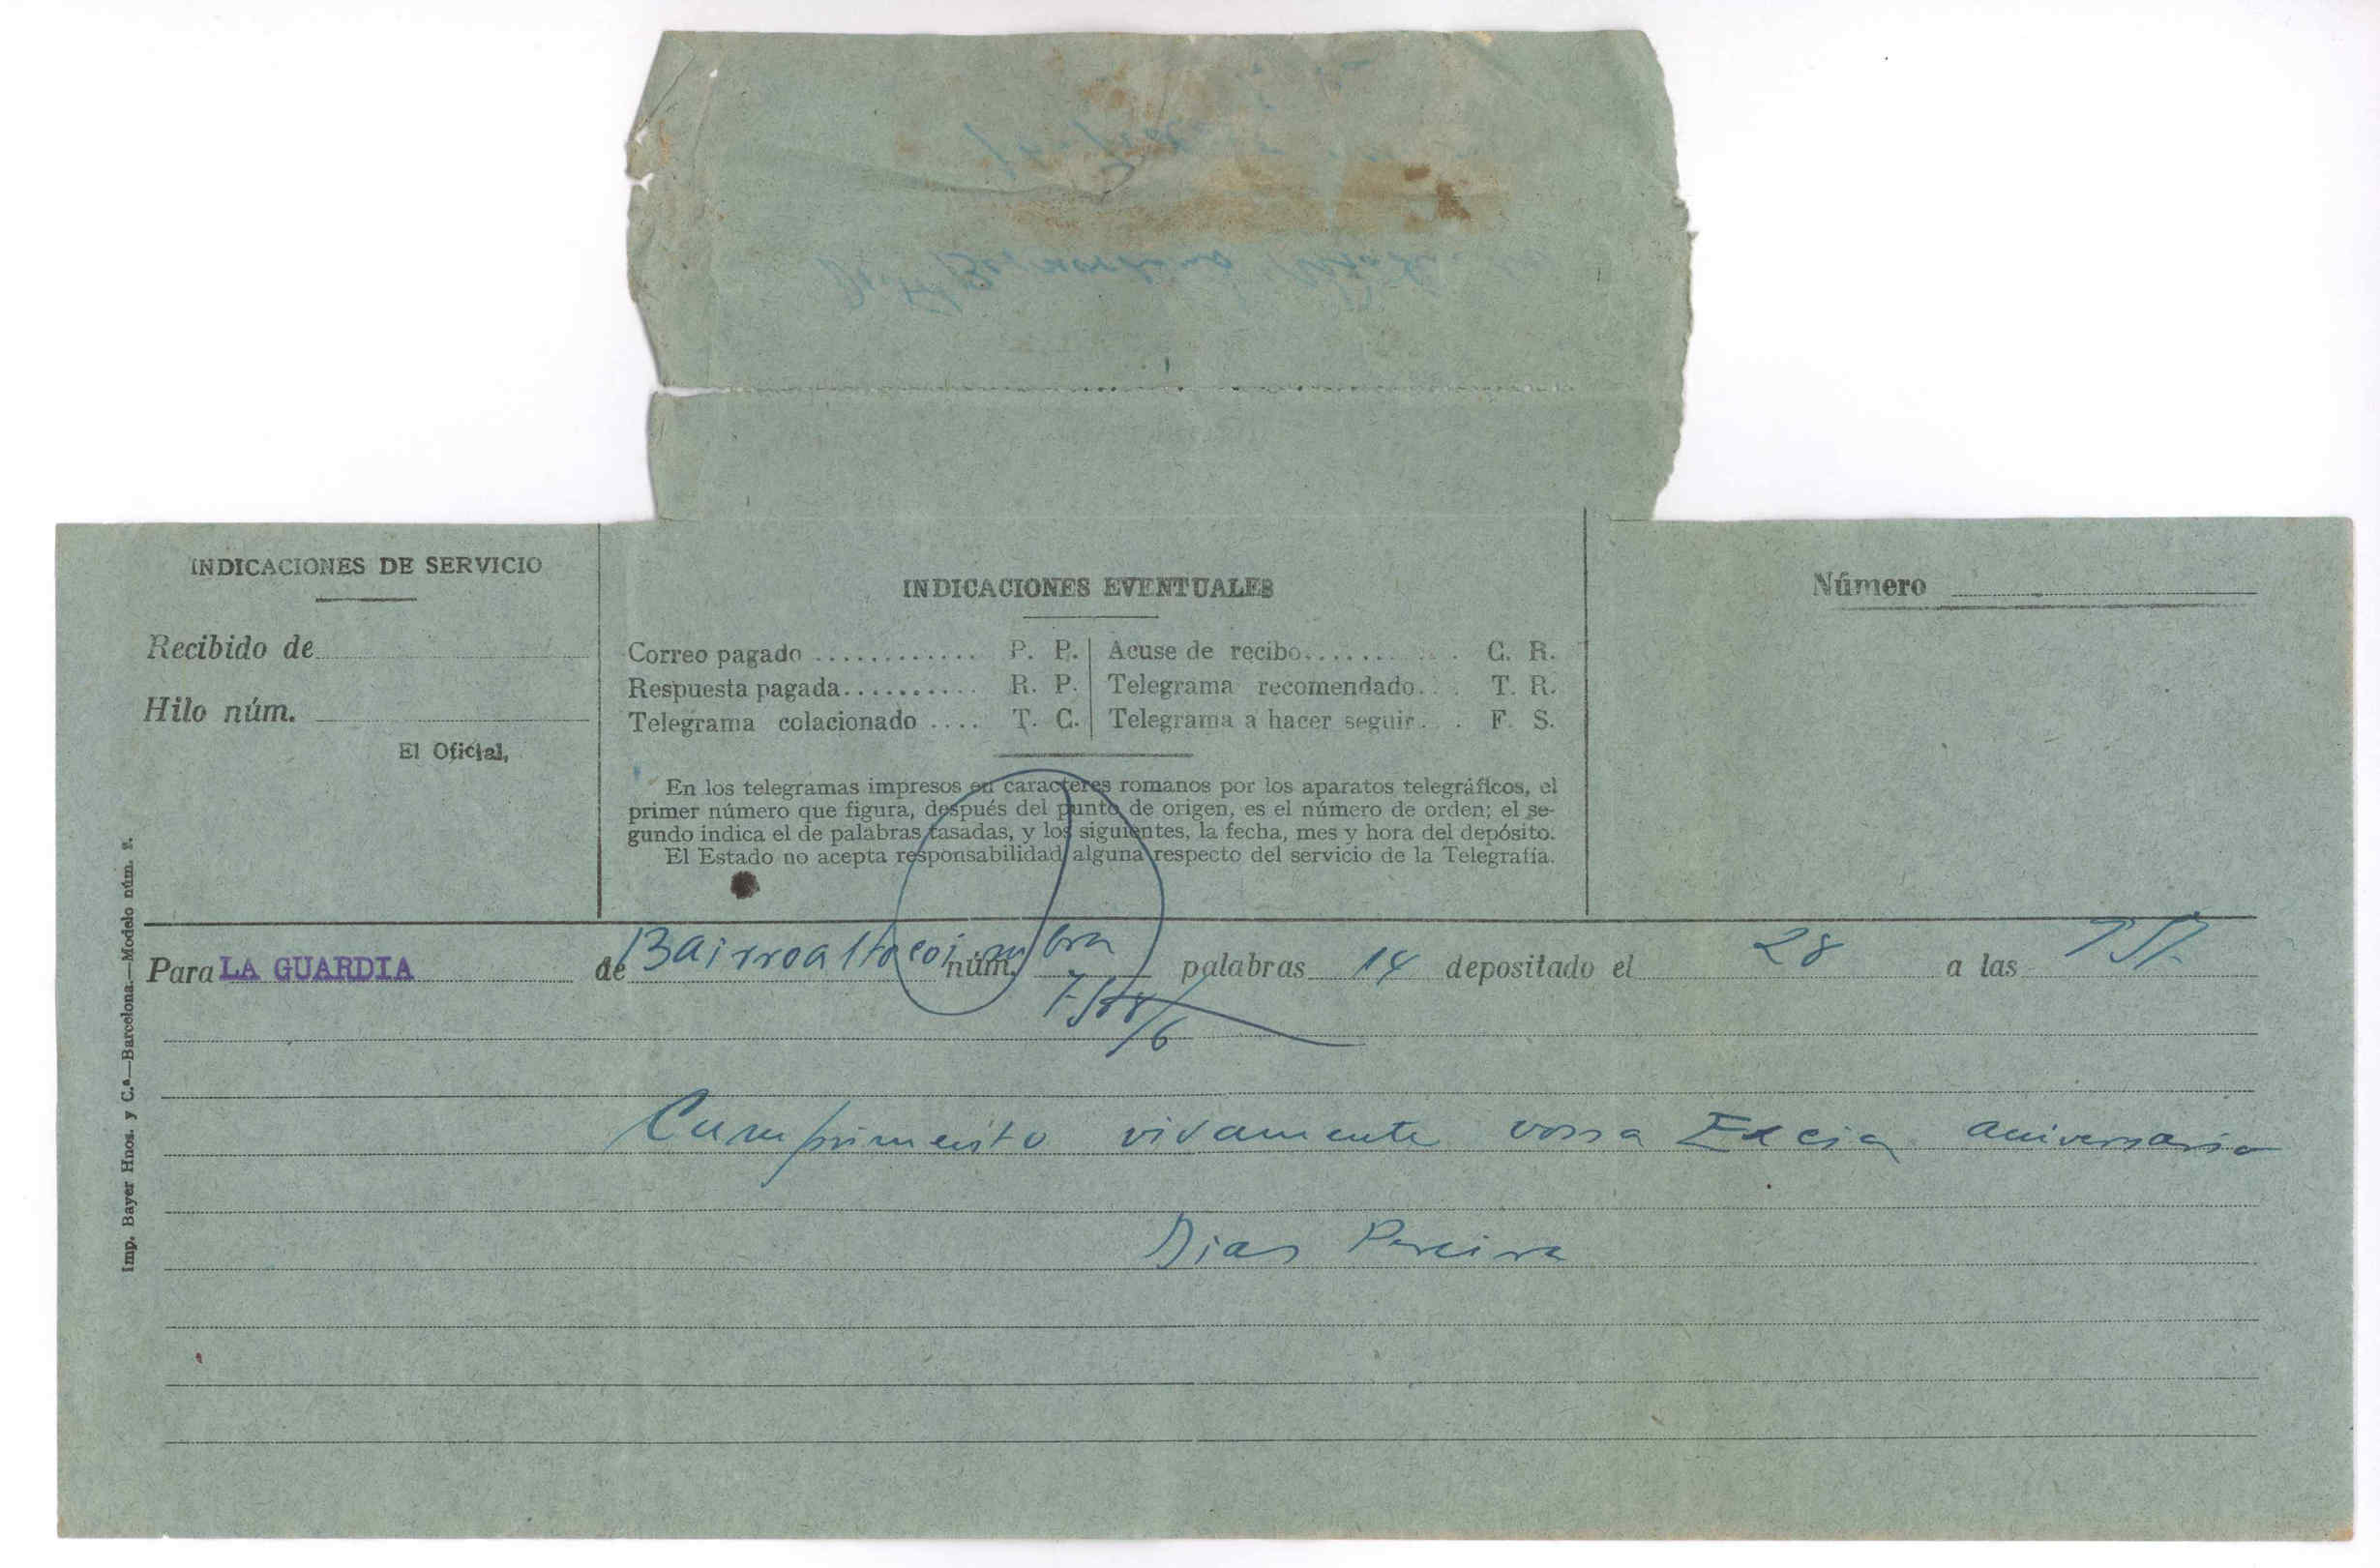 INDICACIONES DE SERVICIO
Recibido de
Hilo núm.
El Oficial,
INDICACIONES EVENTUALES
Correo pagado ............ P. P.
Respuesta pagada.......... R. P.
Telegrama colacionado .... T. C.
Acuse de recibo........... C. R.
Telegrama recomendado... T. R.
Telegrama a hacer seguir... F. S.
En los telegramas impresos en caracteres romanos por los aparatos telegráficos, el
primer número que figura, después del punto de origen, es el número de orden; el se-
gundo indica el de palabras tasadas, y los siguientes, la fecha, mes y hora del depósito.
El Estado no acepta responsabilidad alguna respecto del servicio de la Telegrafía.
Número
Imp. Bayer Hnos. y C.ª—Barcelona—Modelo núm. 2.
Para LA GUARDIA de Bairroaltocoimbra núm. palabras 14 depositado el 28 a las
Cumprimento vivamente vossa Excia aniversario
Dias Pereira